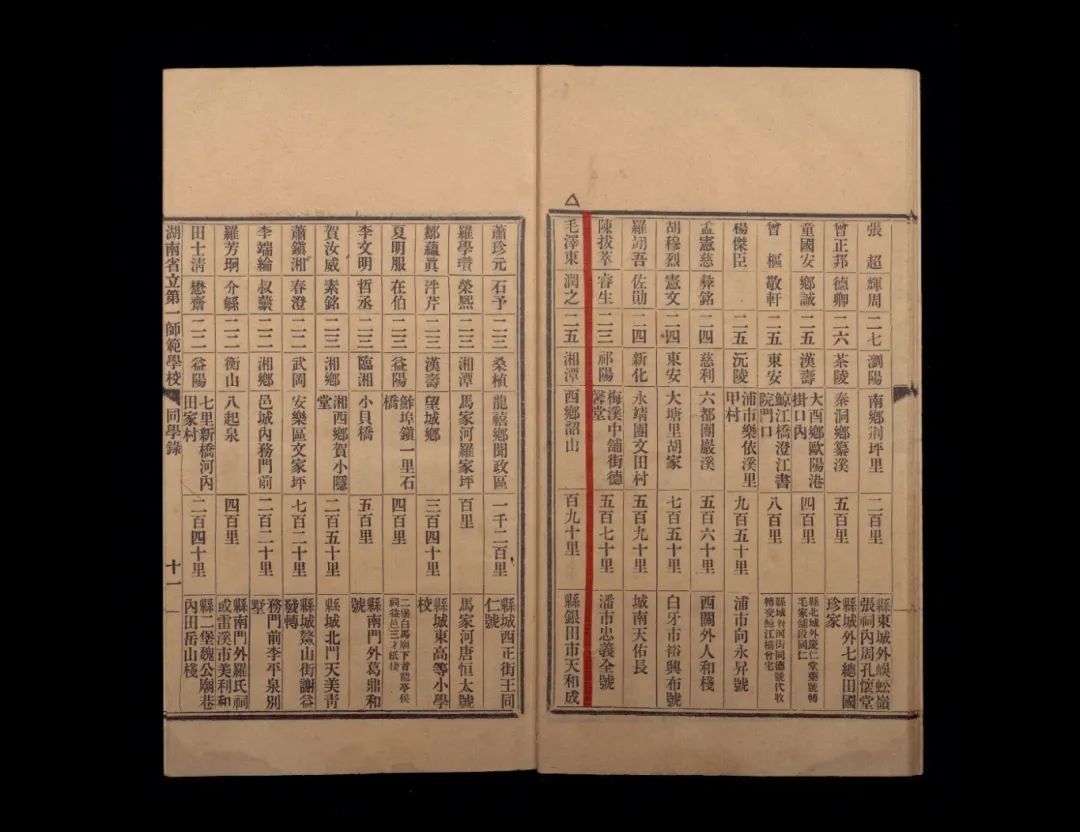 △
張超 輝周 二七 瀏陽 南鄉荊坪里 二百里 縣東城外蜈蚣嶺張祠內周孔懷堂
曾正邦 德卿 二六 茶陵 秦洞鄉纂溪 五百里 縣城外七總田國珍家
童國安 鄉誠 二五 漢壽 大西鄉歐陽港掛口內 四百里 縣北城外慶仁堂藥號轉毛家舖段同仁
曾樞 敬軒 二五 東安 鯨江橋澄江書院門口 八百里 縣城 河街同德號代收轉交鯨江橋曾宅
楊傑臣 二五 沅陵 浦市樂依溪里甲村 九百五十里 浦市向永昇號
孟憲慈 彝銘 二四 慈利 六都團嚴溪 五百六十里 西關外人和棧
胡穆烈 憲文 二四 東安 大塘里胡家 七百五十里 白牙市裕興布號
羅翊吾 佐勛 二四 新化 永靖團文田村 五百九十里 城南天佑長
陳拔萃 睿生 二三 祁陽 梅溪中舖街德馨堂 五百七十里 潘市忠義全號
毛澤東 潤之 二五 湘潭 西鄉韶山 百九十里 縣銀田市天和成
蕭珍元 石予 二三 桑植 龍禧鄉聞政區 一千二百里 縣城西正街王同仁號
羅學瓚 榮熙 二三 湘潭 馬家河羅家坪 百里 馬家河唐恒太號
鄒蘊眞 泮芹 二三 漢壽 望城鄉 三百四十里 縣城東高等小學校
夏明服 在伯 二三 益陽 鮓埠鎭一里石橋 四百里 二堡白馬廟下首龍亭候祠益邑三才祇棧
李文明 哲丞 二三 臨湘 小貝橋 五百里 縣南門外葛鼎和號
賀汝威 素銘 二三 湘鄉 湘西鄉賀小隱堂 二百五十里 縣城北門天美青
蕭鎭湘 春澄 二二 武岡 安樂區文家坪 七百二十里 縣城鰲山街謝益發轉
李端綸 叔 二二 湘鄉 邑城內務門前 二百二十里 務門前李平泉別墅
羅芳珂 介 二二 衡山 八起泉 四百里 縣南門外羅氏祠或雷溪市美利和
田士淸 懋齋 二二 益陽 七里新橋河內田家村 二百四十里 縣二堡魏公廟巷內田岳山棧
湖南省立第一師範學校 同學錄 十一